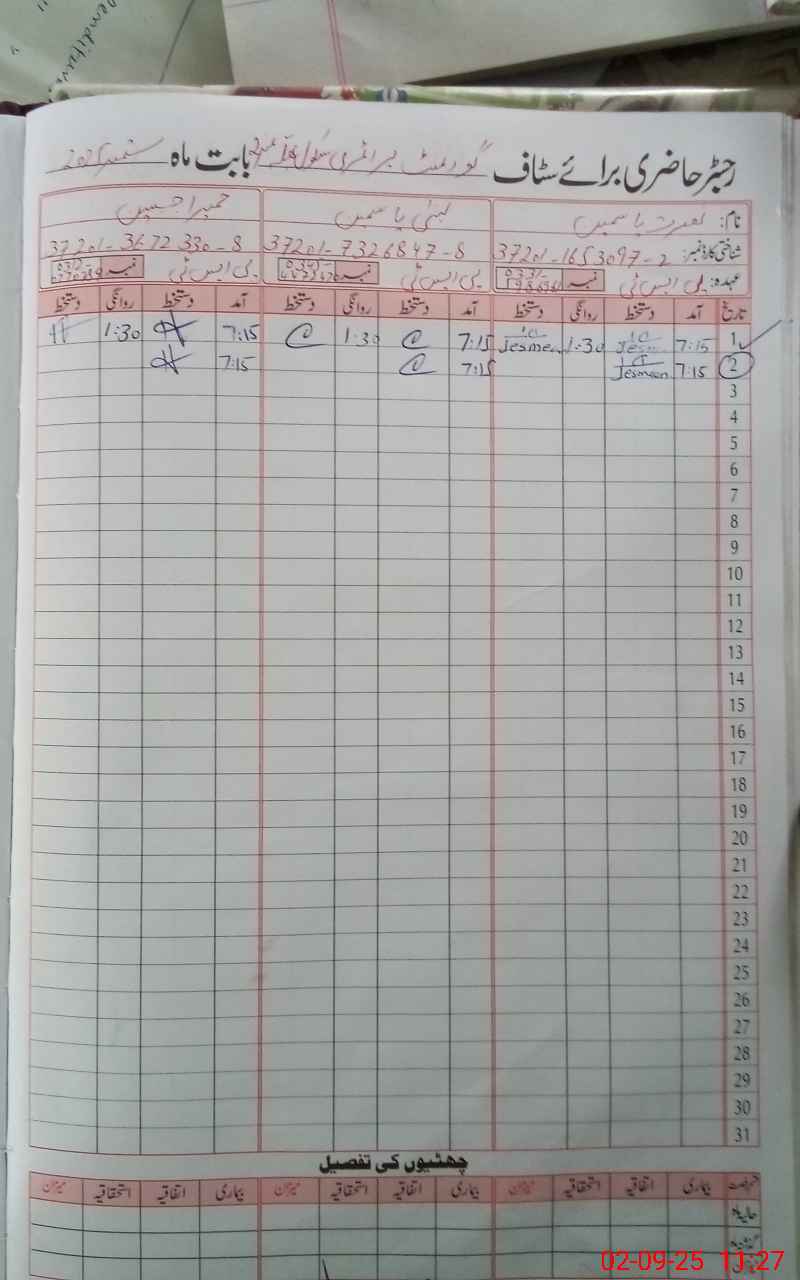 رجسٹر حاضری برائے سٹاف گورنمنٹ پرائمری سکول بابت ماہ ستمبر 2025
نام: نصرت یاسمین لبنیٰ یاسمین حمیرا حسین
شناختی کارڈ نمبر: 37201-1653097-2 37201-7326847-8 37201-3672330-8
عہدہ: پی ایس ٹی نمبر پی ایس ٹی نمبر پی ایس ٹی نمبر
تاریخ آمد دستخط روانگی دستخط آمد دستخط روانگی دستخط آمد دستخط روانگی دستخط
1 7:15 Jesmeen 1:30 Jesmeen 7:15 1:30 7:15 1:30
2 7:15 Jesmeen 7:15 7:15
3
4
5
6
7
8
9
10
11
12
13
14
15
16
17
18
19
20
21
22
23
24
25
26
27
28
29
30
31
چھٹیوں کی تفصیل
بیماری اتفاقیہ استحقاقیہ میزان بیماری اتفاقیہ استحقاقیہ میزان بیماری اتفاقیہ استحقاقیہ میزان
حالیہ ماہ
02-09-25 11:27